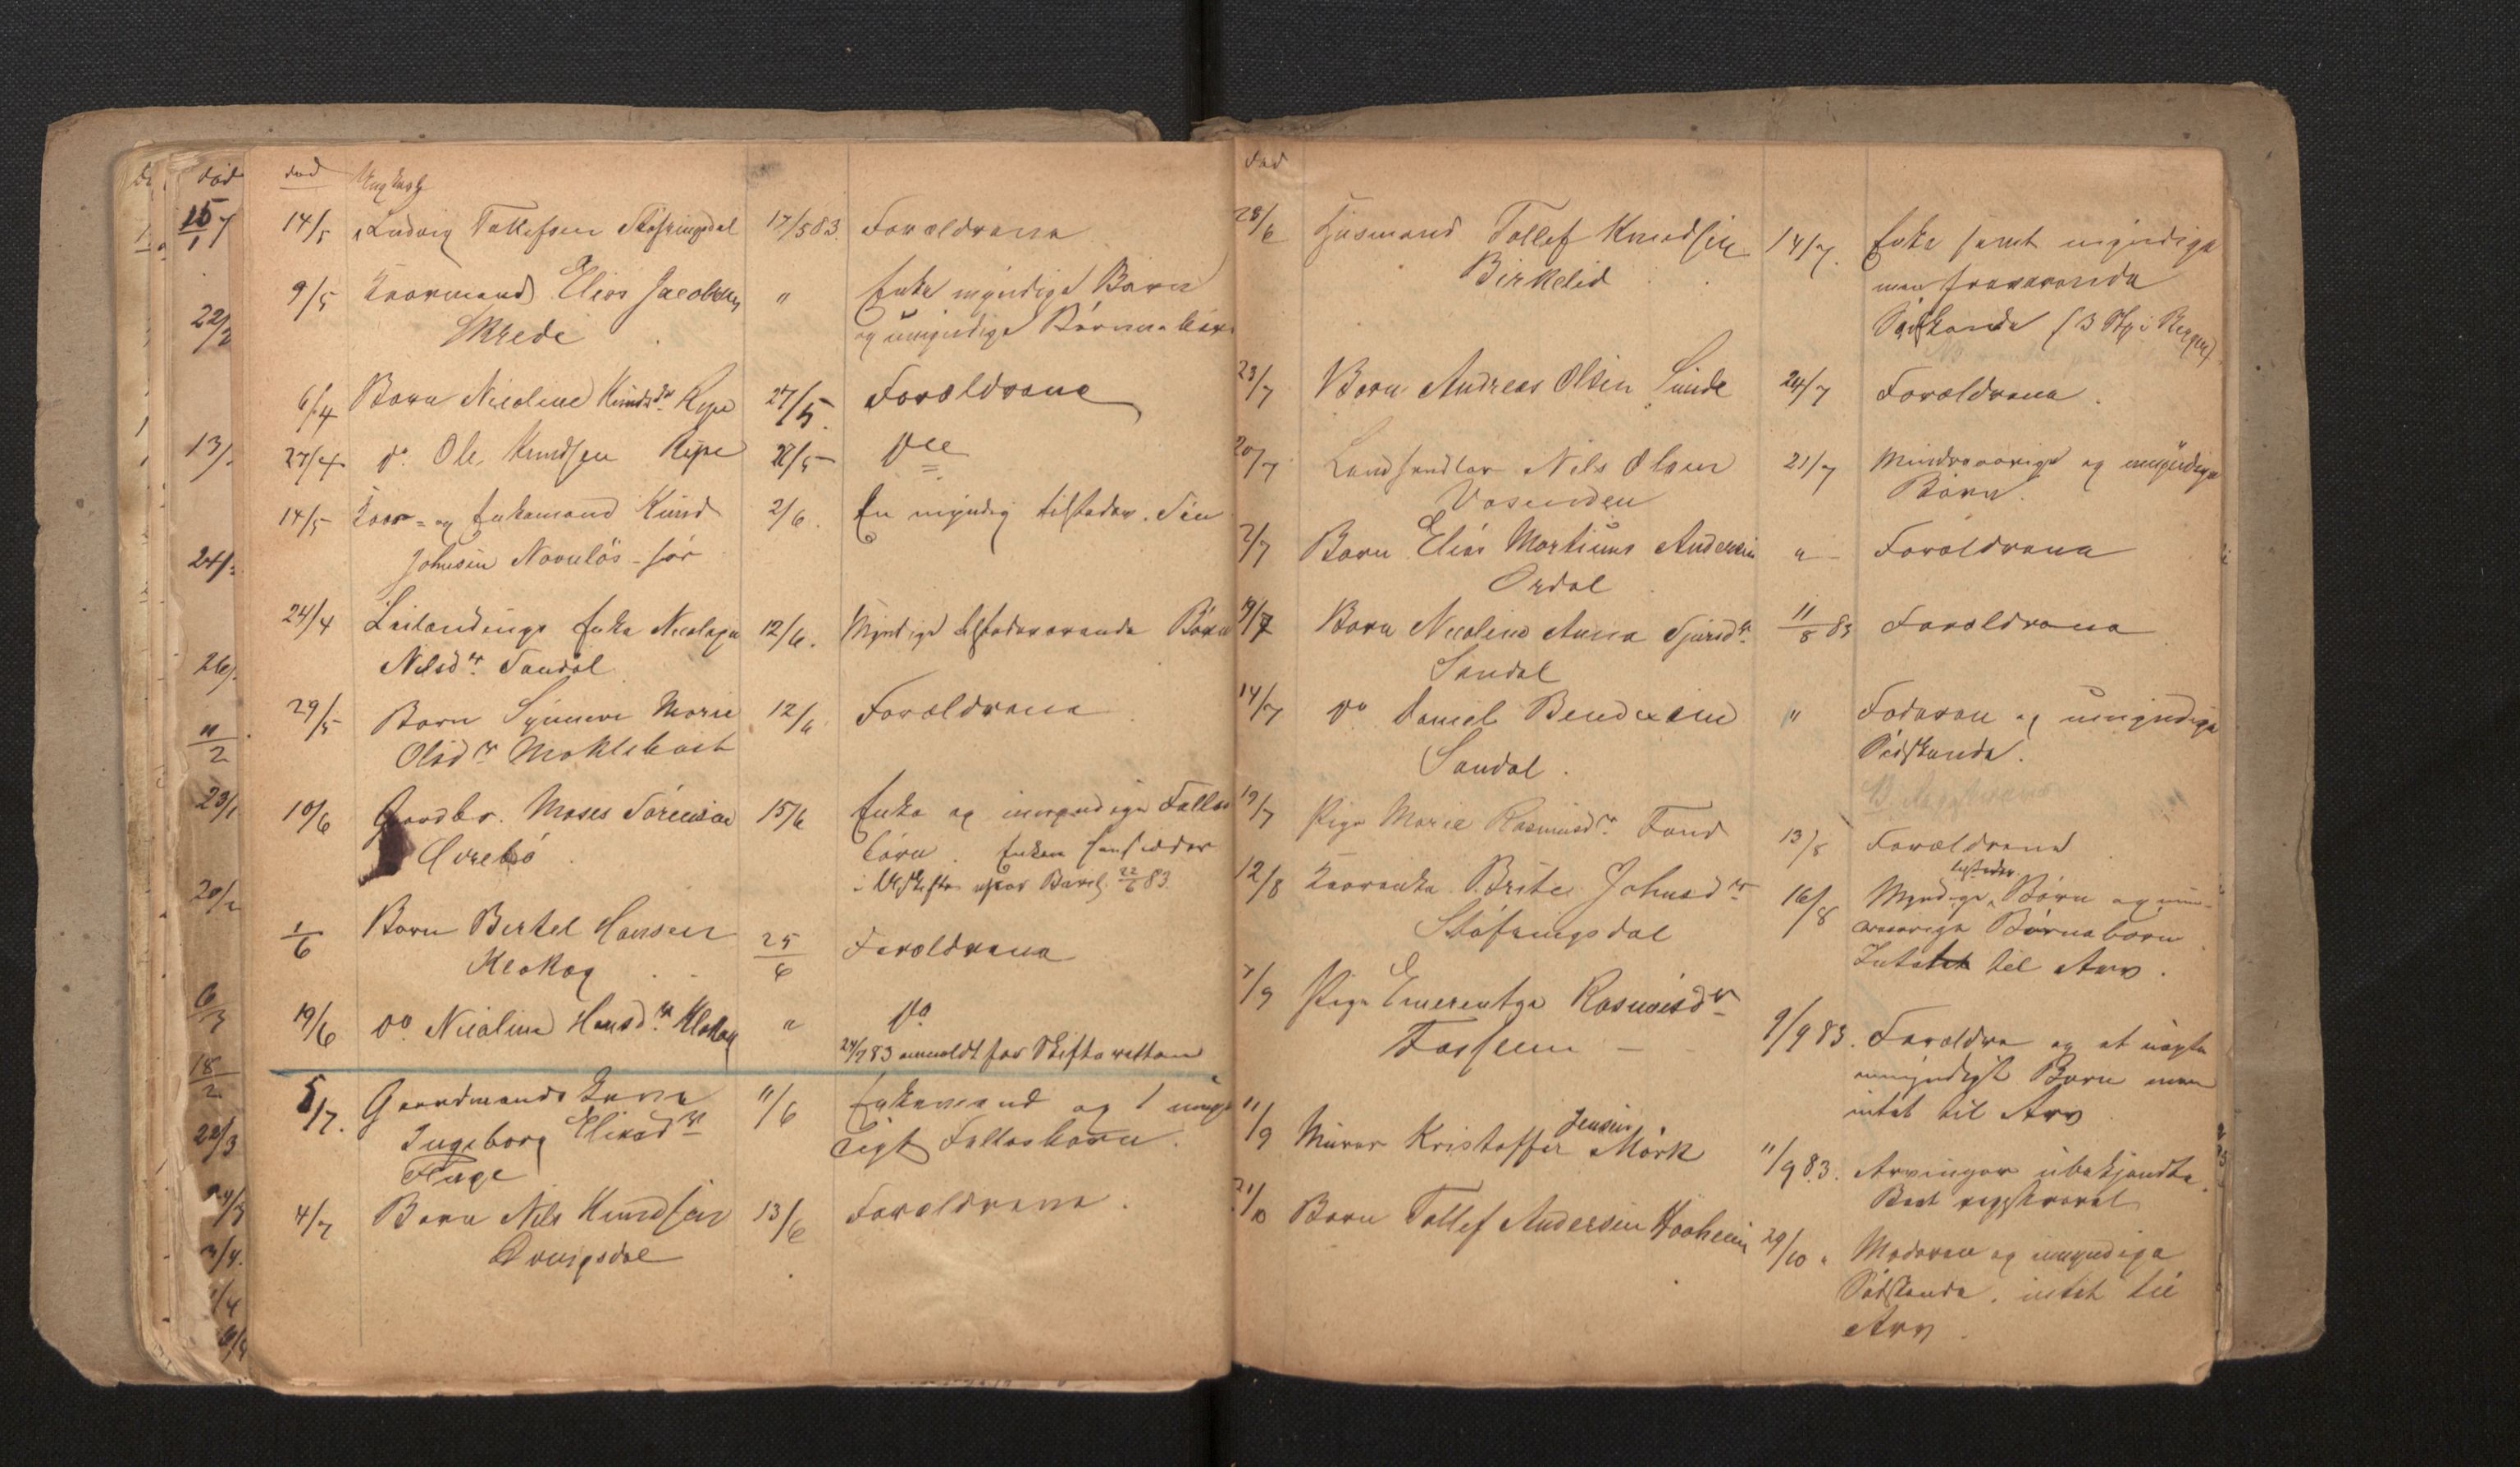 død
14/5 Ludvig Tollefsen Støfringsdal 17/5 83. Forældrene
9/5 Kaarmand Elias Jacobsen " Enke myndige Børn
Skrede og umyndige Børnebørn
6/4 Barn Nicoline Knudsdr Ripe 27/5. Forældrene
27/4 do. Ole Knudsen Ripe
14/5 Kaar- og Enkemand Knud 2/6. En myndig tilstedev. Søn
Johnsen
24/4 Leilændings Enke 12/6. Myndige tilstedeværende Børn
Nilsdr. Sandal
29/5 Barn Synneve Marie 12/6 Forældrene
Olsdr Moklebust
10/6 Gaardbr. Moses Sørensen 15/6 Enke og umyndige Fælles
Øvrebø børn. Enken hensidder
i Uskifte 22/6 83.
1/6 Barn Bertel Hansen 25/6 Forældrene
Klakeg
19/6 do. Nicoline Hansdr. Klakeg " do
24/7 83 anmeldt for Skifteretten
5/7. Gaardmands Kone 11/6 Enkemand og 1 umyn
Ingeborg Eliasdr digt Fællesbarn.
Fluge
4/7 Barn Nils Knudsen 13/6 Forældrene.
død
28/6 Husmand Tollef Knudsen 14/7. Enke samt myndige
Birkelid men fraværende
Sødskende (3 Stk i Bergen)
23/7 Barn Andreas Olsen Sunde 24/7 Forældrene.
20/7 Landhandler Nils Olsen 21/7 Mindreaarige og umyndige
Vasenden Børn.
2/7 Barn Elias Martinus Andersen " Forældrene
Ordal
19/7 Barn Nicoline Anna Sjursdr. 11/8 83 Forældrene
Sandal
14/7 do Daniel Bendixen " Faderen og umyndige
Sandal. Sødskende.
19/7 Pige Marie Rasmusdr. Fond 13/8 Forældrene
12/8 Kaarenke Brite Johnsdr 16/8 Myndige tilstedev. Børn og min-
Støfringsdal dreaarige Børnebørn
Intet til Arv.
7/9 Pige Emerentse Rasmusdr 9/9 83. Forældre og et uægte
Farsum umyndigt Barn men
intet til Arv
11/9 Murer Kristoffer Jensen Mørk 11/9 83. Arvinger ubekjendte.
Boet registreret
21/10 Barn Tollef Andersen Haaheim 29/10 " Moderen og umyndige
Sødskende. intet til
Arv.